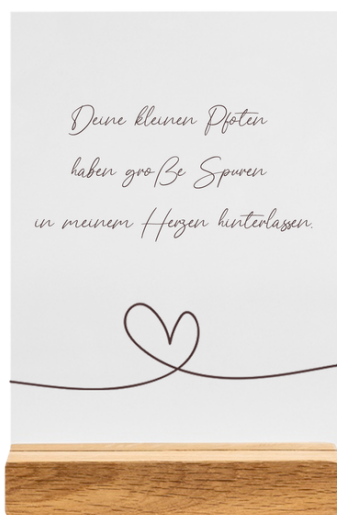 Deine kleinen Pfoten
haben große Spuren
in meinem Herzen hinterlassen.